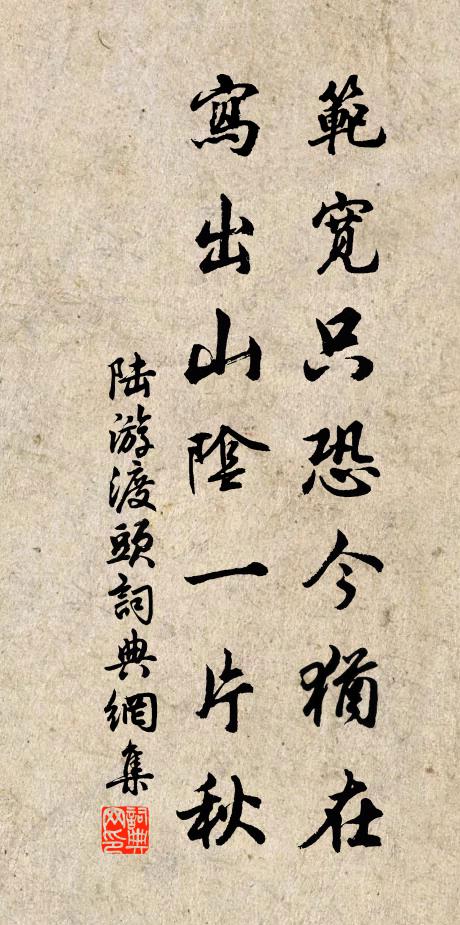 範寬只恐今猶在
寫出山陰一片秋
陸游渡頭詞典網集
詞典網印